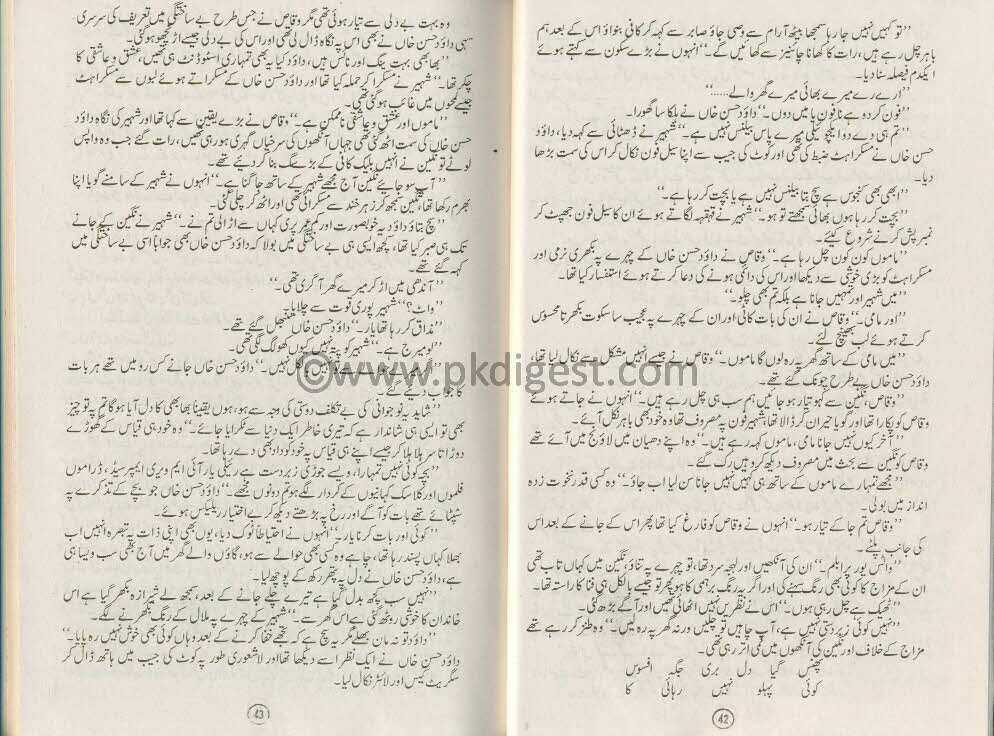 ”تو کہیں نہیں جا رہا سمجھا بیٹھ آرام سے وصی جاؤ صابر سے کہہ کر کافی بنواؤ اس کے بعد ہم
باہر چل رہے ہیں، رات کا کھانا چائنیز سے کھائیں گے۔“ انہوں نے بڑے سکون سے کہتے ہوئے
ایکدم فیصلہ سنا دیا۔
”ارے رے میرے بھائی میرے گھر والے......“
”فون کر دو ہے نا فون یا میں دوں۔“ داؤد حسن خاں نے ہلکا سا گھورا۔
”تم ہی دے دو ایکچوئیلی میرے پاس بیلنس نہیں ہے۔“ شہیر نے ڈھٹائی سے کہہ دیا، داؤد
حسن خاں نے مسکراہٹ ضبط کی تھی اور کوٹ کی جیب سے اپنا سیل فون نکال کر اس کی سمت بڑھا
دیا۔
”ابھی بھی کنجوس ہے سچ بتا بیلنس نہیں ہے یا بچت کر رہا ہے۔“
”بچت کر رہا ہوں بھائی سمجھتے تو ہو۔“ شہیر نے قہقہہ لگاتے ہوئے ان کا سیل فون جھپٹ کر
نمبر پش کرنے شروع کیے۔
”ماموں کون کون چل رہا ہے۔“ وقاص نے داؤد حسن خاں کے چہرے پہ بکھری نرمی اور
مسکراہٹ کو بڑی خوشی سے دیکھا اور اس کی دائمی ہونے کی دعا کرتے ہوئے استفسار کیا تھا۔
”میں شہیر اور تمہیں جانا ہے بلکہ تم بھی چلو۔“
”اور مامی۔“ وقاص نے ان کی بات کاٹی اور ان کے چہرے پہ عجیب سا سکوت بکھرتا محسوس
کرتے ہوئے لب بھینچ گئے۔
”میں مامی کے ساتھ گھر پہ رہ لوں گا ماموں۔“ وقاص نے جیسے انہیں مشکل سے نکال لیا تھا،
داؤد حسن خاں بے طرح چونک گئے تھے۔
”وقاص، نگین سے کہو تیار ہو جائیں ہم سب ہی چل رہے ہیں۔“ انہوں نے جاتے ہوئے
وقاص کو پکارا تھا اور گویا حیران کر ڈالا تھا، شہیر فون پہ مصروف تھا وہ خود بھی باہر نکل آئے۔
”آخر کیوں نہیں جانا مامی، ماموں کہہ رہے ہیں۔“ وہ اپنے دھیان میں لاؤنج میں آئے تھے
وقاص کو نگین سے بحث میں مصروف دیکھ کر وہیں رک گئے۔
”مجھے تمہارے ماموں کے ساتھ ہی کہیں نہیں جانا سن لیا اب جاؤ۔“ وہ کسی قدر نخوت زدہ
انداز میں بولی۔
”وقاص تم جا کے تیار ہو۔“ انہوں نے وقاص کو فارغ کیا تھا پھر اس کے جانے کے بعد اس
کی جانب پلٹے۔
”واٹس یور پرابلم۔“ ان کی آنکھیں اور لہجہ سرد تھا، تیز چہرے پہ تناؤ، نگین میں کہاں تاب تھی
ان کے مزاج کا کوئی بھی رنگ سہنے کی اور اگر یہ رنگ برہمی کا ہو پھر تو جیسے بالکل ہی فنا کا راستہ تھا۔
”ٹھیک ہے چل رہی ہوں۔“ اس نے نظریں نہیں اٹھائی تھیں اور آگے بڑھ گئی۔
”نہیں کوئی زبردستی نہیں ہے، آپ چاہیں تو چلیں ورنہ گھر پہ رہ لیں۔“ وہ طنز کر رہے تھے
مزاج کے خلاف اور نگین کی آنکھوں میں نمی اتر رہی تھی۔
پھنس گیا دل بری جگہ افسوس
کوئی پہلو نہیں رہائی کا
42
وہ بہت بے دلی سے تیار ہوئی تھی مگر وقاص نے جس طرح بے ساختگی میں تعریف کی سرسری
سہی داؤد حسن خاں نے بھی اس پہ نگاہ ڈال لی تھی اور اس کی بے دلی جیسے اڑنچھو ہو گئی۔
”بھابھی بہت چک اور نائس ہیں، داؤد کیا یہ بھی تمہاری اسٹوڈنٹ ہی تھیں، عشق و عاشقی کا
چکر تھا۔“ شہیر نے مسکرا کر جملہ کیا تھا اور داؤد حسن خاں کے مسکراتے ہوئے لبوں سے مسکراہٹ
جیسے لمحوں میں غائب ہو گئی تھی۔
”ماموں اور عشق و عاشقی ناممکن ہے۔“ وقاص نے بڑے یقین سے کہا تھا اور شہیر کی نگاہ داؤد
حسن خاں کی سمت اٹھ گئی تھی جہاں آنکھوں کی سرخیاں گہری ہو رہی تھیں، رات گئے جب وہ واپس
لوٹے تو نگین نے انہیں بلیک کافی کے بڑے مگ بنا کر دیئے تھے۔
”آپ سو جائے نگین آج مجھے شہیر کے ساتھ جاگنا ہے۔“ انہوں نے شہیر کے سامنے گویا اپنا
بھرم رکھا تھا، نگین سمجھ کر زہر خند سے مسکرائی تھی اور اٹھ کر چلی گئی۔
”سچ بتاؤ داؤد یہ خوبصورت اور کم عمر پری کہاں سے اڑا لی تم نے۔“ شہیر نے نگین کے جانے
تک ہی صبر کیا تھا، کچھ ایسی ہی بے ساختگی میں بولا کہ داؤد حسن خاں بھی جواباً اسی بے ساختگی میں
کہہ گئے تھے۔
”آندھی میں اڑ کر میرے گھر آ گری تھی۔“
”واٹ؟“ شہیر پوری قوت سے چلایا۔
”مذاق کر رہا تھا یار۔“ داؤد حسن خاں سنبھل گئے تھے۔
”لو میرج ہے۔“ شہیر کو پتہ نہیں کیوں کھوج لگی تھی۔
نہیں بالکل نہیں۔“ داؤد حسن خاں جانے کس رو میں تھے ہر بات
کا جواب دیئے گئے۔
”شاید یہ نوجوانی کی بے تکلف دوستی کی وجہ سے ہو، ہوں یقیناً بھابھی کا دل آیا ہو گا تم پہ تو چیز
بھی تو ایسی ہی شاندار ہے کہ تیری خاطر ایک دنیا سے ٹکرایا جائے۔“ وہ خود ہی قیاس کے گھوڑے
دوڑاتا سر ہلا ہلا کر جیسے اپنے ہی قیاس پہ خود کو داد بھی دے رہا تھا۔
”بچہ کوئی نہیں تمہارا، ویسے جوڑی زبردست ہے رئیلی یار آئی ایم ویری امپریسڈ، ڈراموں
فلموں اور کلاسک کہانیوں کے کردار لگے ہو تم دونوں مجھے۔“ داؤد حسن خاں جو بچے کے تذکرے پہ
سٹپٹائے تھے بات کو آگے اور رخ پہ بڑھتے دیکھ کر بے اختیار ریلیکس ہوئے۔
”کوئی اور بات کرنا یار۔“ انہوں نے احتیاطاً ٹوک دیا، یوں بھی اپنی ذات پہ تبصرہ انہیں اب
بھلا کہاں پسند رہا تھا، چاہے وہ کسی بھی حوالے سے ہو، گاؤں والے گھر میں آج بھی سب ویسا ہی
ہے، داؤد حسن خاں نے دل پہ پتھر رکھ کے پوچھ لیا۔
”نہیں سب کچھ بدل گیا ہے تیرے چلے جانے کے بعد، سمجھ لے شیرازہ بکھر گیا ہے اس
خاندان کا خوشی روٹھ گئی ہے اس گھر سے۔“ شہیر کے چہرے پہ ملال کے رنگ بکھرنے لگے۔
”داؤد تو نہ مان بھلے مگر یہ سچ ہے کہ تجھے خفا کرنے کے بعد وہاں کوئی بھی خوش نہیں رہ پایا۔“
داؤد حسن خاں نے ایک نظر اسے دیکھا تھا اور لاشعوری طور پہ کوٹ کی جیب میں ہاتھ ڈال کر
سگریٹ کیس اور لائٹر نکال لیا۔
43
©www.pkdigest.com